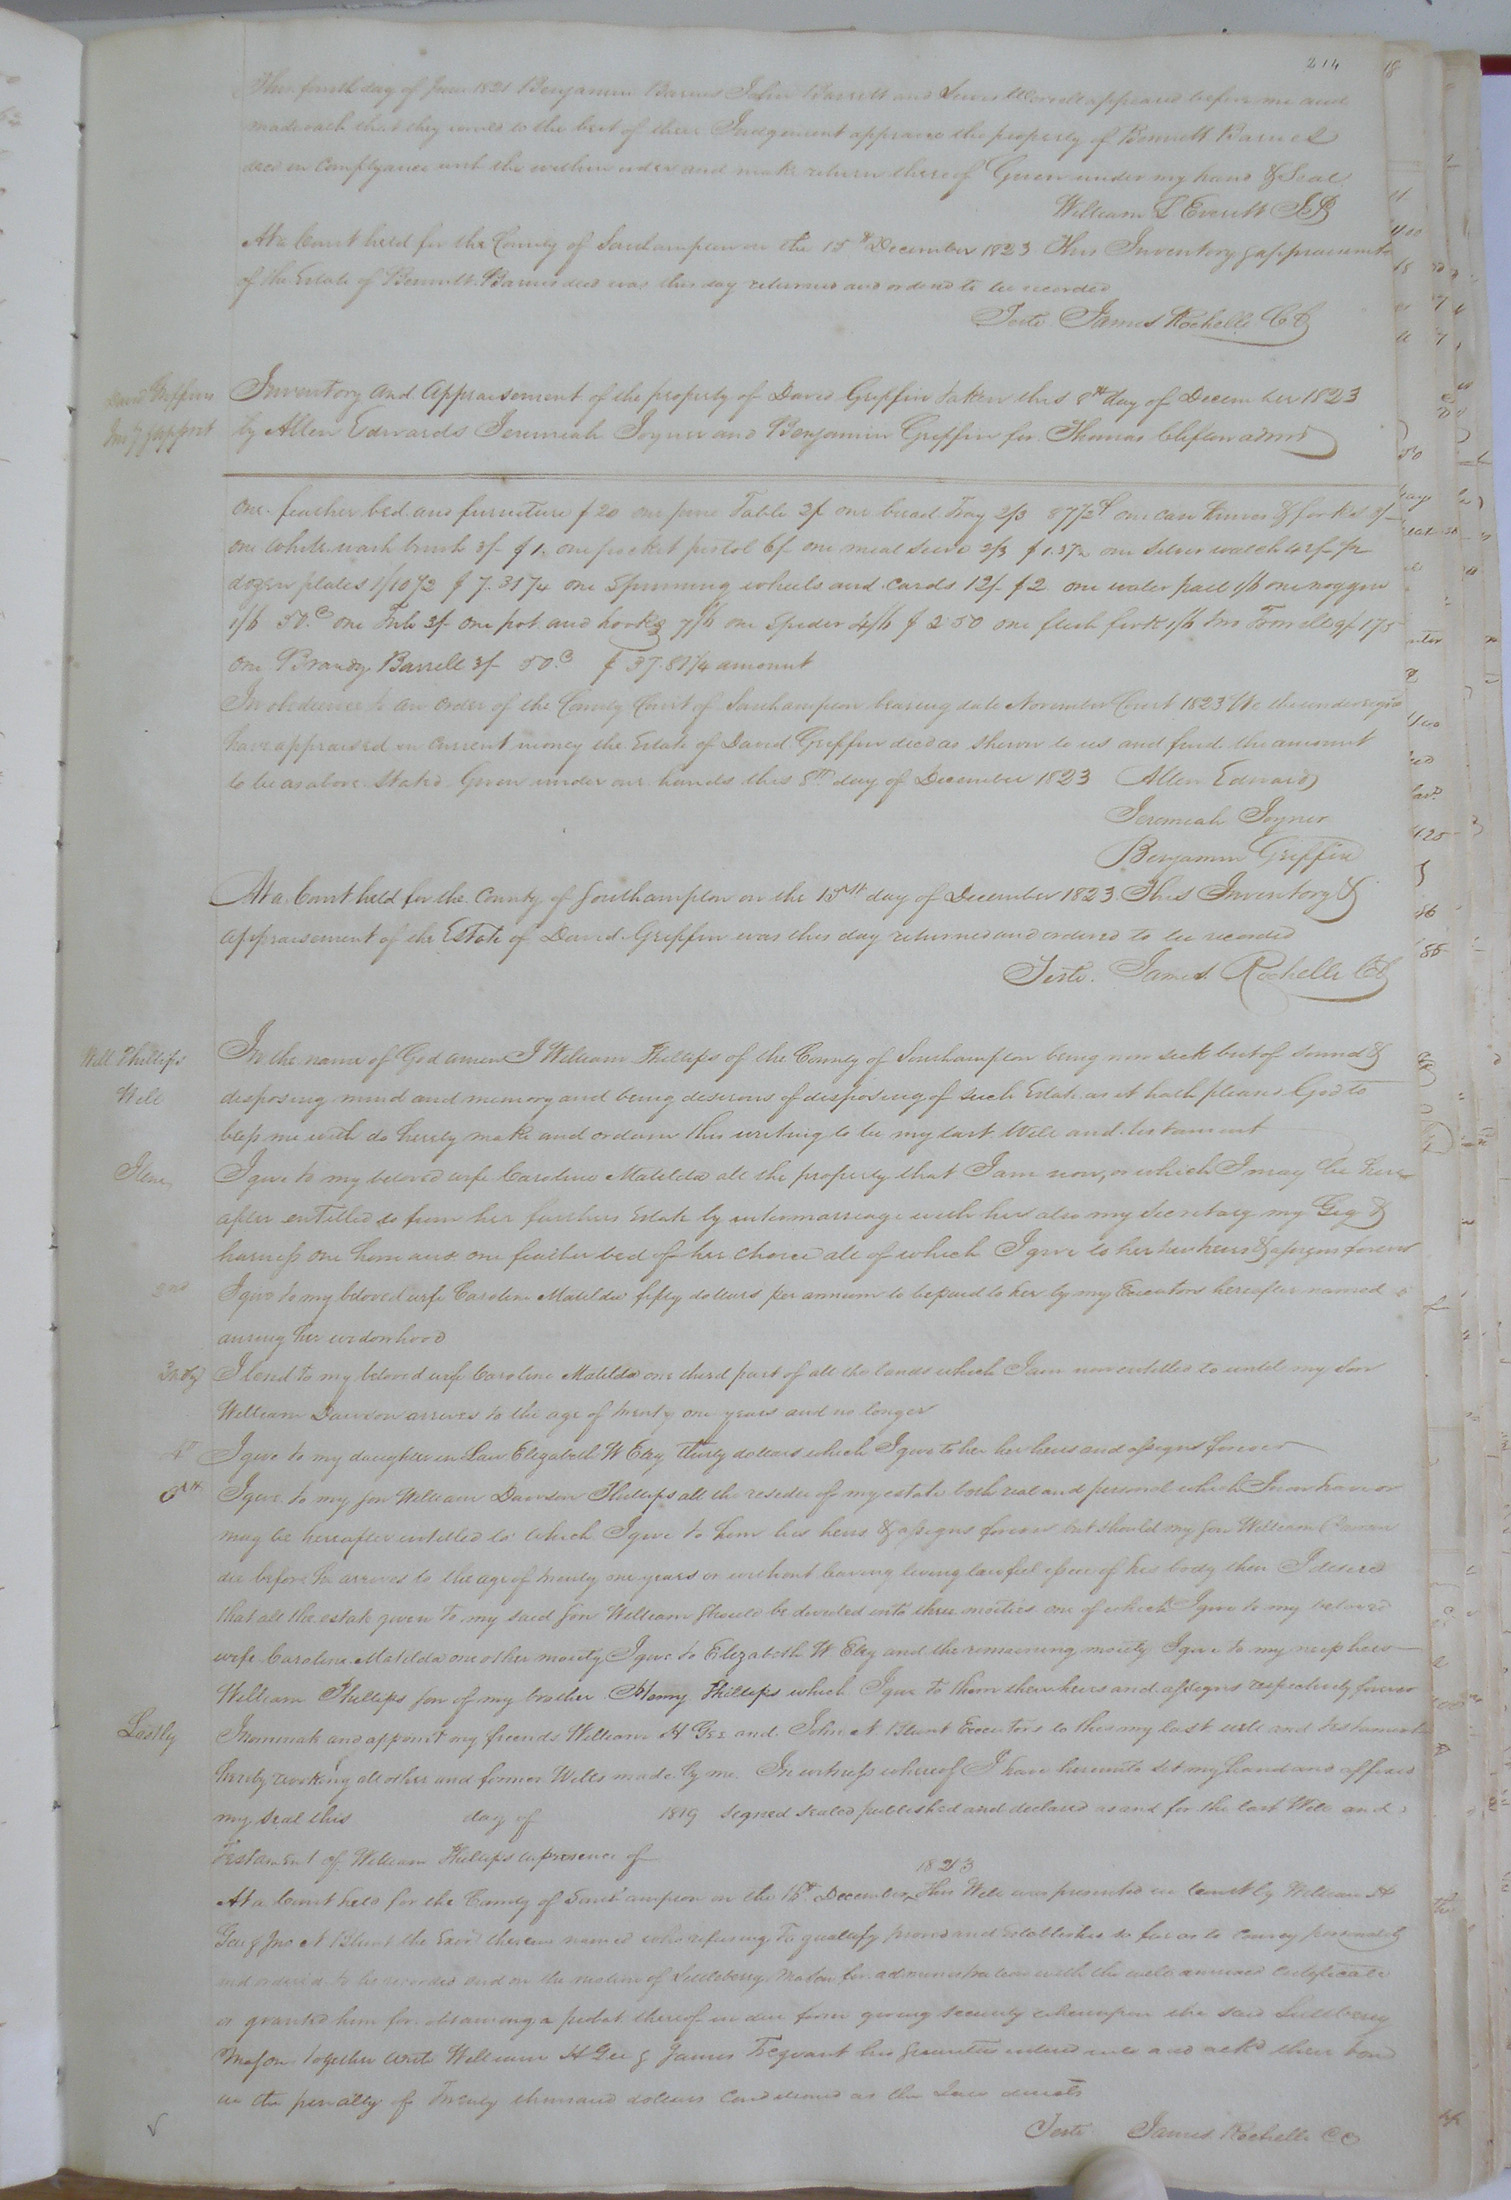 214
This fourth day of June 1821 Benjamin Barnes John Barrett and Lewis Worrell appeared before me and
made oath that they would to the best of their Judgement appraise the property of Bennett Barnes
decd in complyance with the within order and make return thereof Given under my hand & Seal
William Everitt JP
At a Court held for the County of Southampton on the 15th December 1823 This Inventory & appraisement
of the Estate of Bennett Barnes decd was this day returned and ordered to be recorded
Teste James Rochelle CC
David Griffins
Invy & appmt
Inventory and appraisement of the property of David Griffin taken this 8th day of December 1823
by Allen Edwards Jeremiah Joyner and Benjamin Griffin for Thomas Clifton admr
One feather bed and furniture $20 one pine Table 3/ one bread Tray 2/3 87 1/2 cts one case knives & forks 3/
one white wash brush 3/ $1. one pocket pistol 6/ one meal seive 2/3 $1.37 1/2 one silver watch 42/ 1/2
dozen plates 1/10 1/2 $7.31 1/4 one Spinning wheels and cards 12/ $2 one water pail 1/6 one noggin
1/6 50.c one Tub 3/ one pot and hooks 7/6 one Spider 4/6 $2.50 one flesh fork 1/6 two Towells 9/ 1.75
One Brandy Barrell 3/ 50.c $37.81 1/4 amount
In obedience to an order of the County Court of Southampton bearing date November Court 1823 We the undersigned
have appraised in current money the Estate of David Griffin decd as shewn to us and find the amount
to be as above stated Given under our hands this 8th day of December 1823 Allen Edwards
Jeremiah Joyner
Benjamin Griffin
At a Court held for the County of Southampton on the 15th day of December 1823 This Inventory &
appraisement of the Estate of David Griffin was this day returned and ordered to be recorded
Teste. James Rochelle CC
Will Phillips
Will
In the name of God amen I William Phillips of the County of Southampton being now sick but of sound &
disposing mind and memory and being desirous of disposing of such Estate as it hath pleased God to
bless me with do hereby make and ordain this writing to be my last Will and testament
Item
I give to my beloved wife Caroline Matilda all the property that I am now, or which I may be here
after entitled to from her fathers Estate by intermarriage with her also my Secretary my Gig &
harness one horse and one feather bed of her choice all of which I give to her her heirs & assigns forever
2nd
I give to my beloved wife Caroline Matilda fifty dollars per annum to be paid to her by my Executors hereafter named
during her widowhood
3rdly
I lend to my beloved wife Caroline Matilda one third part of all the lands which I am now entitled to until my Son
William Dawson arrives to the age of twenty one years and no longer
4th
I give to my daughter in Law Elizabeth W Eley thirty dollars which I give to her her heirs and assigns forever
5th
I give to my son William Dawson Phillips all the residue of my estate both real and personal which I now have or
may be hereafter intitled to which I give to him his heirs & assigns forever but should my son William Dawson
die before he arrives to the age of twenty one years or without leaving living lawful issue of his body then I desired
that all the estate given to my said son William should be divided into three moities one of which I give to my beloved
wife Caroline Matilda one other moiety I give to Elizabeth W Eley and the remaining moiety I give to my nephew
William Phillips son of my brother Henry Phillips which I give to them their heirs and assigns respectively forever
Lastly
I nominate and appoint my friends William H Gee and John N Blunt Executors to this my last will and testament
hereby revoking all other and former Wills made by me. In witness whereof I have hereunto set my hand and affixed
my seal this day of 1819 Signed sealed published and declared as and for the last Will and
Testament of William Phillips in presence of
1823
At a Court held for the County of Southampton on the 15th December This Will was presented in Court by William H
Gee & Jno N Blunt the Exors therein named who refusing to qualify proved and established so far as to convey personalty
and ordered to be recorded and on the motion of Littleberry Mason for administration with the will annexed certificate
is granted him for obtaining a probat thereof in due form giving security whereupon the said Littleberry
Mason together with William H Gee & James Trezvant his securities entered into and ackd their bond
in the penalty of Twenty thousand dollars conditioned as the Law directs
Teste James Rochelle CC